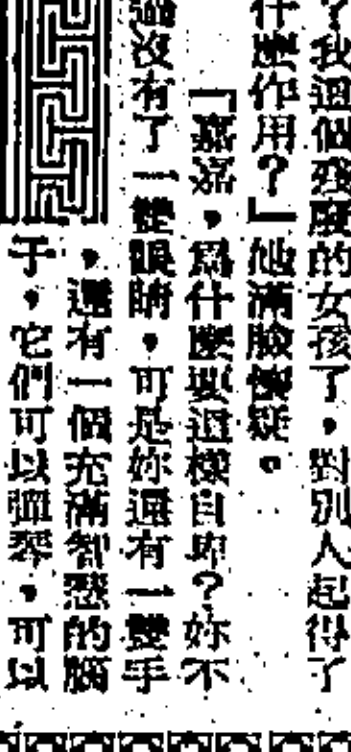 了我這個殘廢的女孩了，對別人起得了
什麼作用？」他滿臉懷疑。
「嘉嘉，爲什麼要這樣自卑？妳不
過沒有了一雙眼睛，可是妳還有一雙手
，還有一個充滿智慧的腦
于，它們可以彈琴，可以